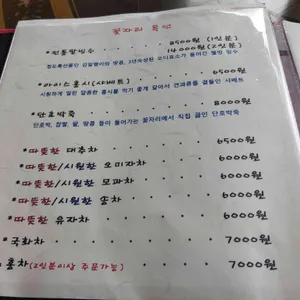 꽃자리
*전통팥빙수 · · · · 8500원 (1인분)
14000원 (2인분)
*아이스홍시(샤베트) · · · · 6500원
시원하게 얼린 달콤한 홍시를 먹기 좋게 갈아서 견과류를 곁들인 샤베트
*단호박죽 · · · · · 8000원
단호박, 찹쌀, 팥, 땅콩 등이 들어가는 꽃자리에서 직접 끓인 단호박죽
*따뜻한 대추차 · · · · · 6500원
*따뜻한/시원한 오미자차 · · · 6000원
*따뜻한/시원한 모과차 · · · · 6000원
*따뜻한/시원한 송차 · · · · 6000원
*따뜻한 유자차 · · · · · 6000원
*국화차 · · · · · · · 7000원
홍차(2인분이상 주문가능) · · · · 7000원